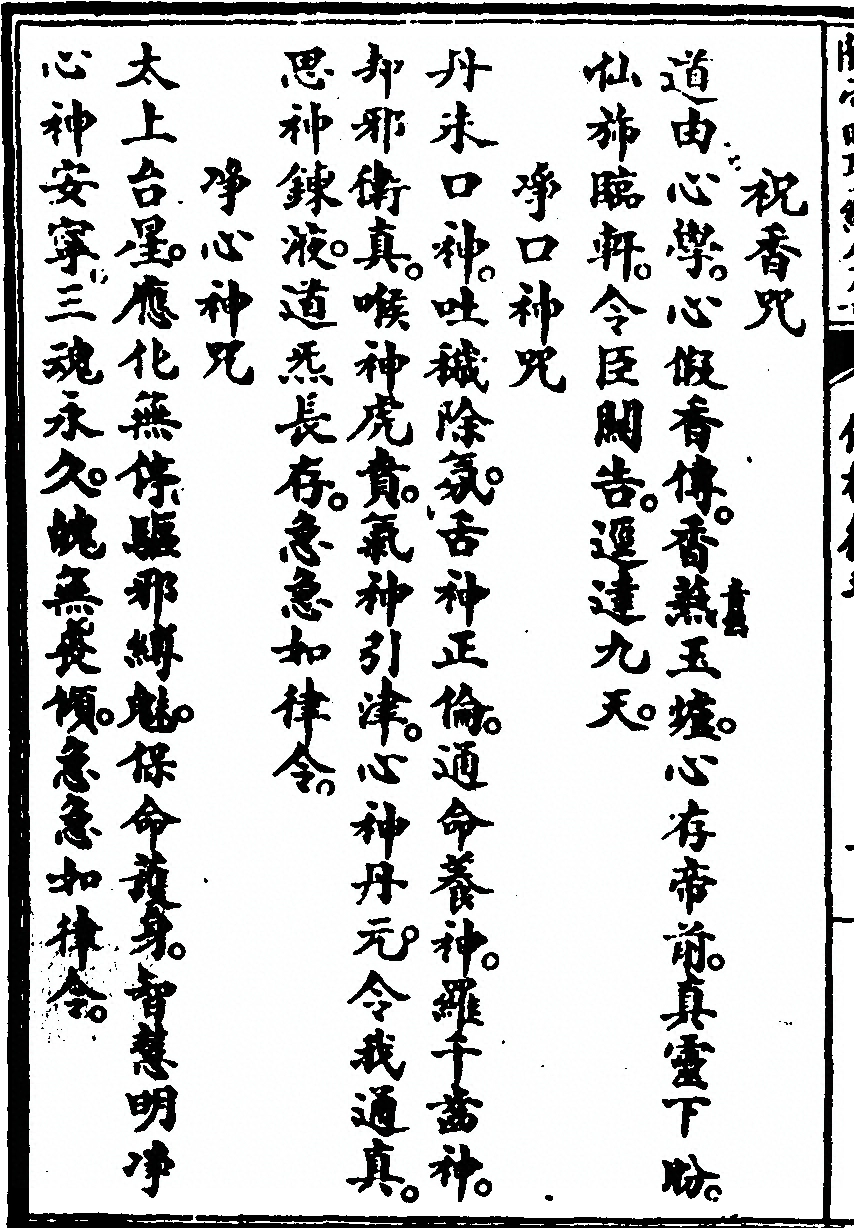 祝香咒
道由心學。心假香傳。香爇玉爐。心存帝前。真靈下盼。
仙旆臨軒。令臣關告。逕達九天。
凈口神咒
丹朱口神。吐穢除氛。舌神正倫。通命養神。羅千齒神。
却邪衛真。喉神虎賁。氣神引津。心神丹元。令我通真。
思神鍊液。道炁長存。急急如律令。
凈心神咒
太上台星。應化無停。驅邪縛魅。保命護身。智慧明凈
心神安寧。三魂永久。魄無喪傾。急急如律令。